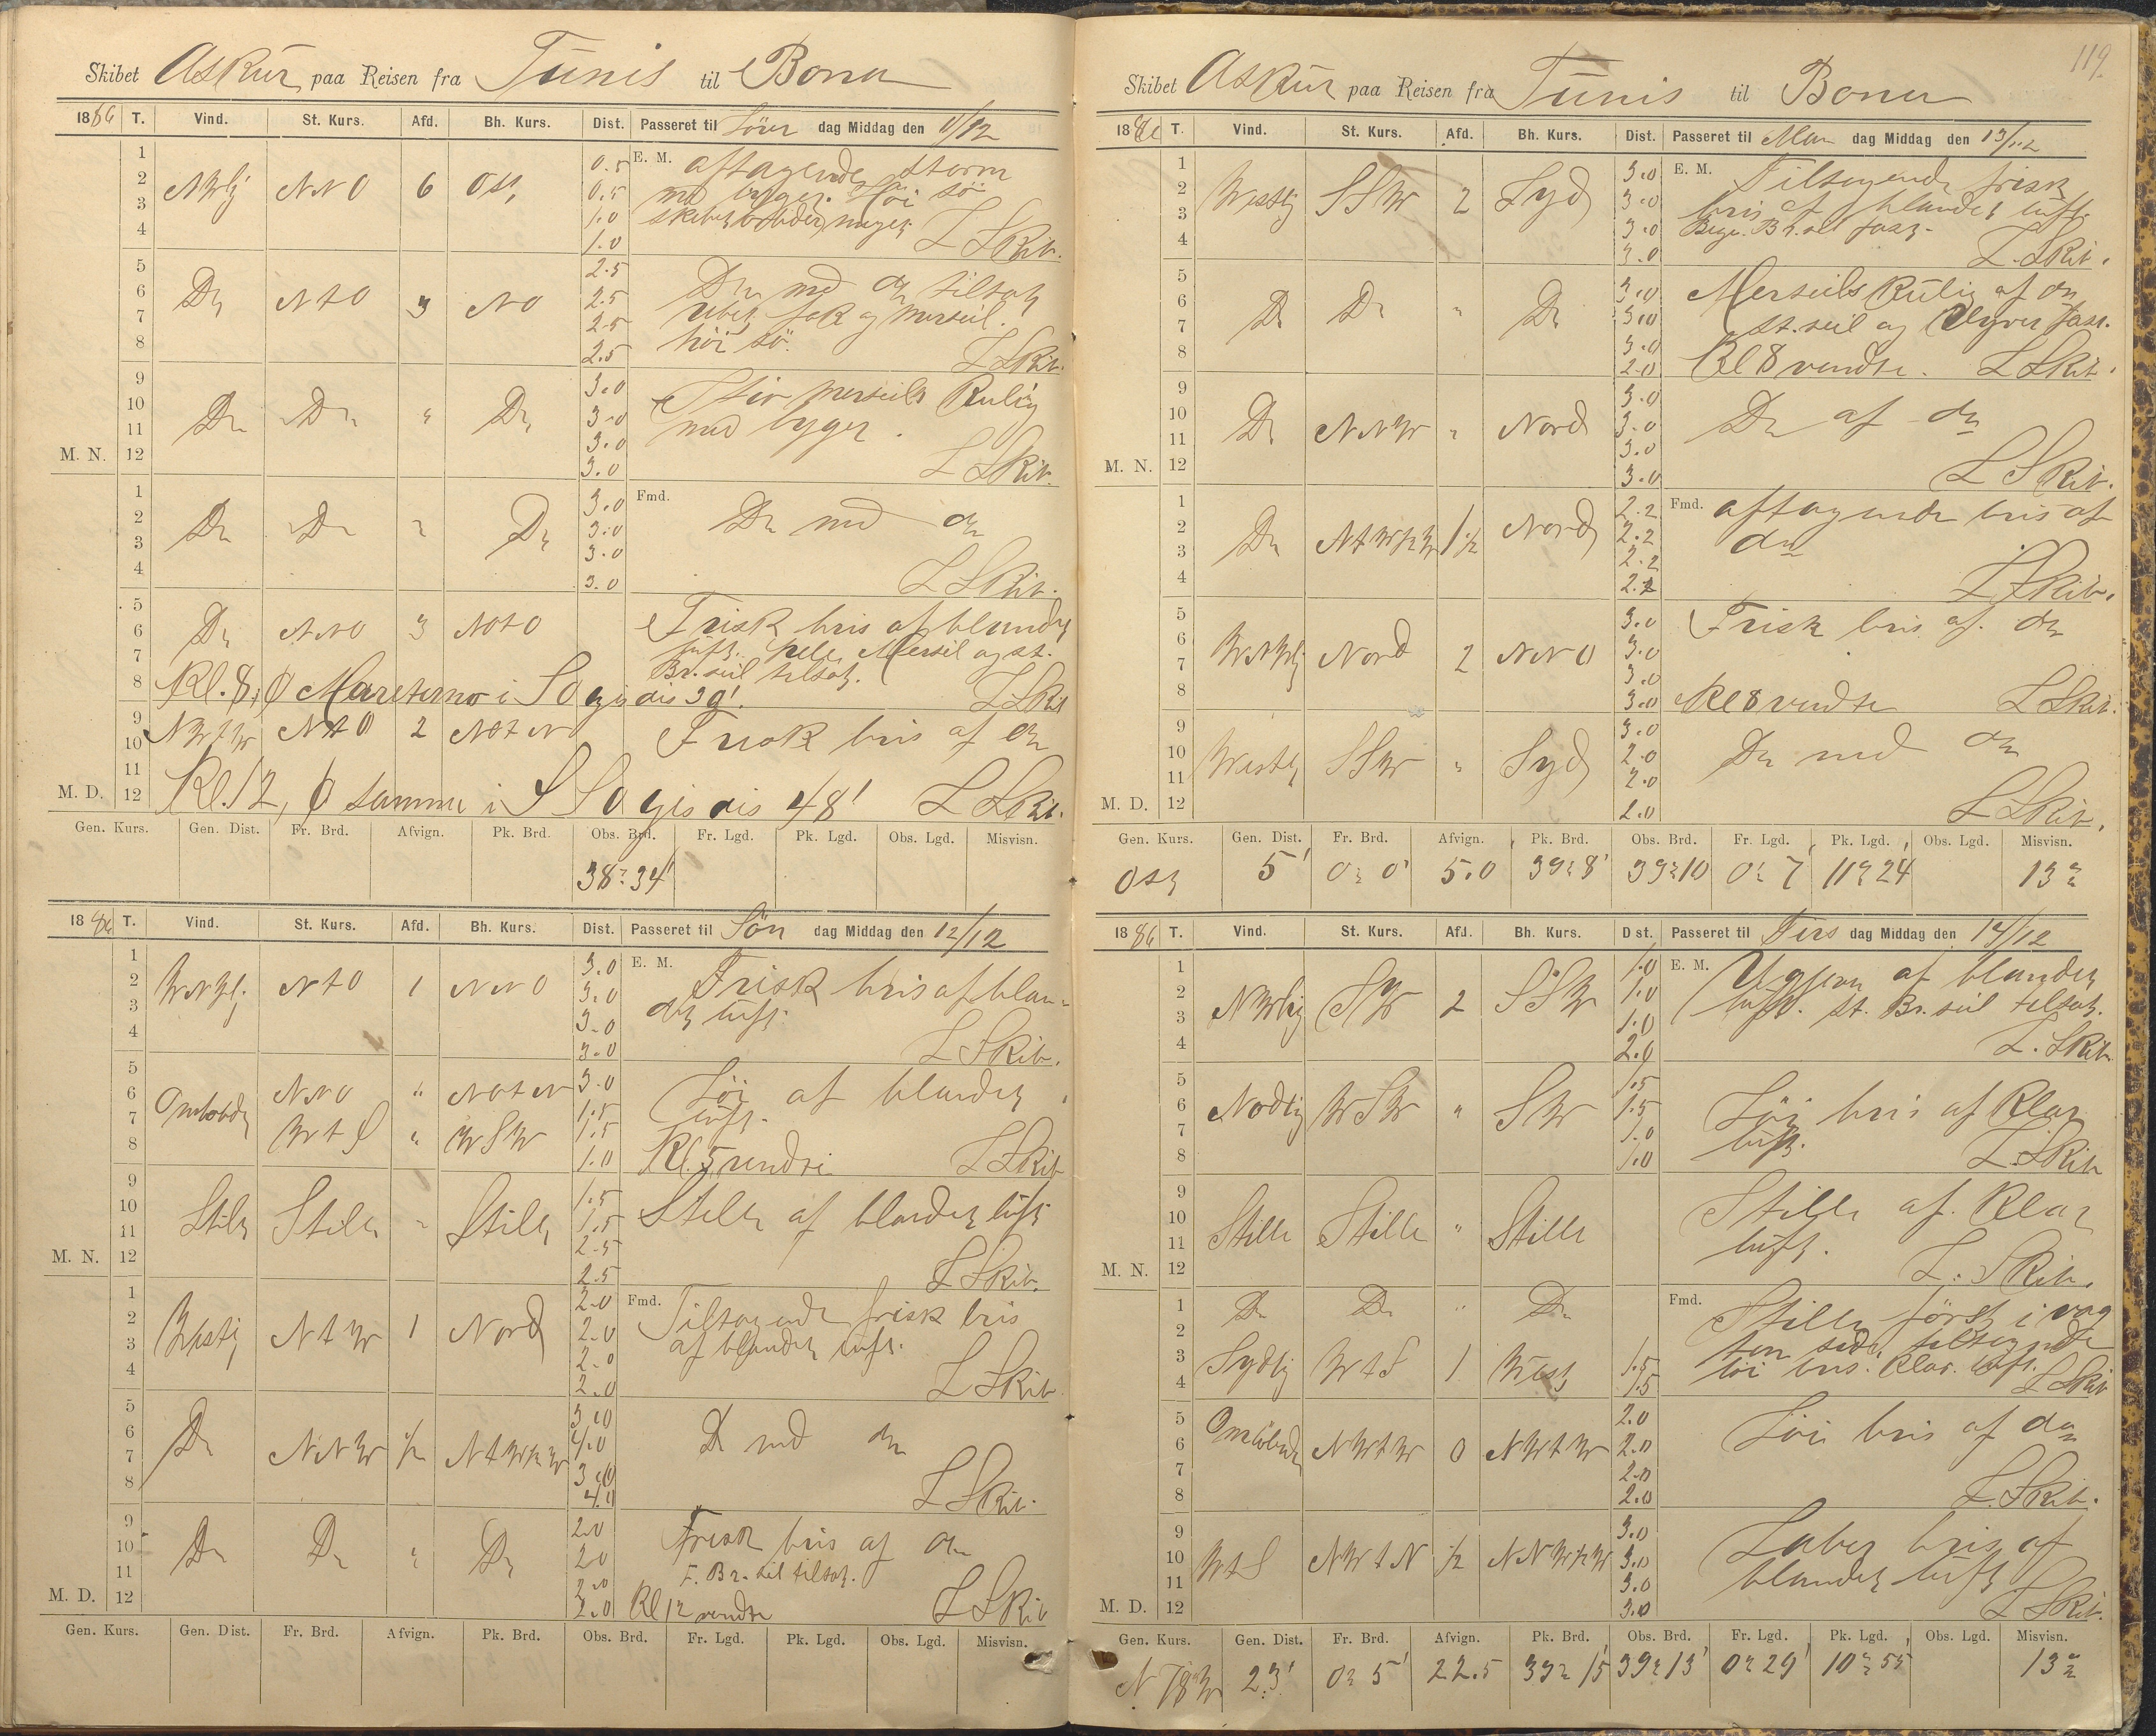 Skibet Askur paa Reisen fra Tunis til Bona
1886 T. Vind. St. Kurs. Afd. Bh. Kurs. Dist. Passeret til Löver dag Middag den 11/12
1 0.5 E. M. aftagende storm
2 NWlig NNO 6 Ost 0.5 med byger. Höi sö
3 1.0 skibet arbeider meget
4 1.0 L Skib.
5 2.5 Do med do tilsat
6 Do NtO 3 NO 2.5 rebet fok og merseil.
7 2.5 höi sö.
8 2.5 L Skib.
9 3.0 Stiv merseils Kuling
10 Do Do " Do 3.0 med byger.
11 3.0
M. N. 12 3.0 L Skib.
1 3.0 Fmd. Do med do
2 Do Do " Do 3.0
3 3.0
4 3.0 L Skib.
5 Frisk bris af blandet
6 Do NNO 3 NOtO luft. hele Merseil og st.
7 Br. seil tilsat.
8 Kl. 8, Maretimo i SO gis dis 39'. L Skib
9 NWtW NtO 2 NOtN Frisk bris af do
10
11
M. D. 12 Kl. 12, samme i SSO gis dis 48' L Skib.
Gen. Kurs. Gen. Dist. Fr. Brd. Afvign. Pk. Brd. Obs. Brd. Fr. Lgd. Pk. Lgd. Obs. Lgd. Misvisn.
38° 34'
1886 T. Vind. St. Kurs. Afd. Bh. Kurs. Dist. Passeret til Sön dag Middag den 12/12
1 3.0 E. M. Frisk bris af blan-
2 WNWl. NtO 1 NNO 3.0 det luft.
3 3.0
4 3.0 L Skib.
5 3.0 Löi af blandet
6 Omlobde NNO " NOtN 1.5 luft.
7 WtS " WSW 1.5
8 1.0 Kl. 5 vendte L Skib
9 1.5 Stille af blandet luft
10 Stille Stille " Stille 1.5
11 2.5
M. N. 12 2.5 L Skib.
1 2.0 Fmd. Tiltagende frisk bris
2 Westl. NtW 1 Nord 2.0 af blandet luft.
3 2.0
4 2.0 L Skib
5 3.0 Do med do
6 Do NNW 1/2 NtW1/2W 4.0
7 3.0
8 4.0 L Skib.
9 2.0 Frisk bris af do
10 Do Do " Do 2.0 F. Br. seil tilsat.
11 2.0
M. D. 12 2.0 Kl 12 vendte L Skib
Gen. Kurs. Gen. Dist. Fr. Brd. Afvign. Pk. Brd. Obs. Brd. Fr. Lgd. Pk. Lgd. Obs. Lgd. Misvisn.
119.
Skibet Askur paa Reisen fra Tunis til Bona
1886 T. Vind. St. Kurs. Afd. Bh. Kurs. Dist. Passeret til Man dag Middag den 13/12
1 3.0 E. M. Tiltagende frisk
2 Westlig SSW 2 Syd 3.0 bris af blandet luft.
3 3.0 Br. seil fast.
4 3.0 L. Skib.
5 3.0 Merseils Kuling af do
6 Do Do " Do 3.0 st. seil og Klyver fast.
7 3.0
8 2.0 Kl 8 vendte. L Skib.
9 3.0 Do af do
10 Do NNW " Nord 3.0
11 3.0
M. N. 12 3.0 L Skib.
1 2.2 Fmd. aftagende bris af
2 Do NtW1/2W 1 1/2 Nord 2.2 do
3 2.2
4 2.2 L Skib.
5 3.0 Frisk bris af do
6 WNWlig Nord 2 NNO 3.0
7 3.0
8 3.0 Kl 8 vendte L Skib.
9 3.0 Do med do
10 Westl SSW " Syd 2.0
11 2.0
M. D. 12 2.0 L Skib.
Gen. Kurs. Gen. Dist. Fr. Brd. Afvign. Pk. Brd. Obs. Brd. Fr. Lgd. Pk. Lgd. Obs. Lgd. Misvisn.
Ost 5' 0° 0' 5.0 39° 8' 39° 10 0° 7' 11° 24' 13°
1886 T. Vind. St. Kurs. Afd. Bh. Kurs. Dist. Passeret til Tirs dag Middag den 14/12
1 1.0 E. M. af blandet
2 NWlig SW 2 SSW 1.0 luft. st. Br. seil tilsat.
3 1.0
4 2.0 L. Skib
5 1.5
6 Nodlig WSW " SW 1.5 Löi bris af Klar
7 1.0 luft.
8 1.0 L. Skib
9 Stille af Klar
10 Stille Stille " Stille luft.
11
M. N. 12 L. Skib.
1 Do Do " Do Fmd. Stille först i vag
2 ten siden tiltagende
3 Sydlig WtS 1 West 1.5 löi bris. Klar luft.
4 1.5 L Skib
5 2.0 Löi bris af do
6 Omlöbende NWtW 0 NWtW 2.0
7 2.0
8 2.0 L. Skib.
9 3.0 Laber bris af
10 WtS NWtN 1/2 NNW1/2W 3.0 blandet luft
11 3.0
M. D. 12 3.0 L Skib.
Gen. Kurs. Gen. Dist. Fr. Brd. Afvign. Pk. Brd. Obs. Brd. Fr. Lgd. Pk. Lgd. Obs. Lgd. Misvisn.
N 78 W 23' 0° 5' 22.5 39° 15' 39° 13' 0° 29' 10° 55' 13°